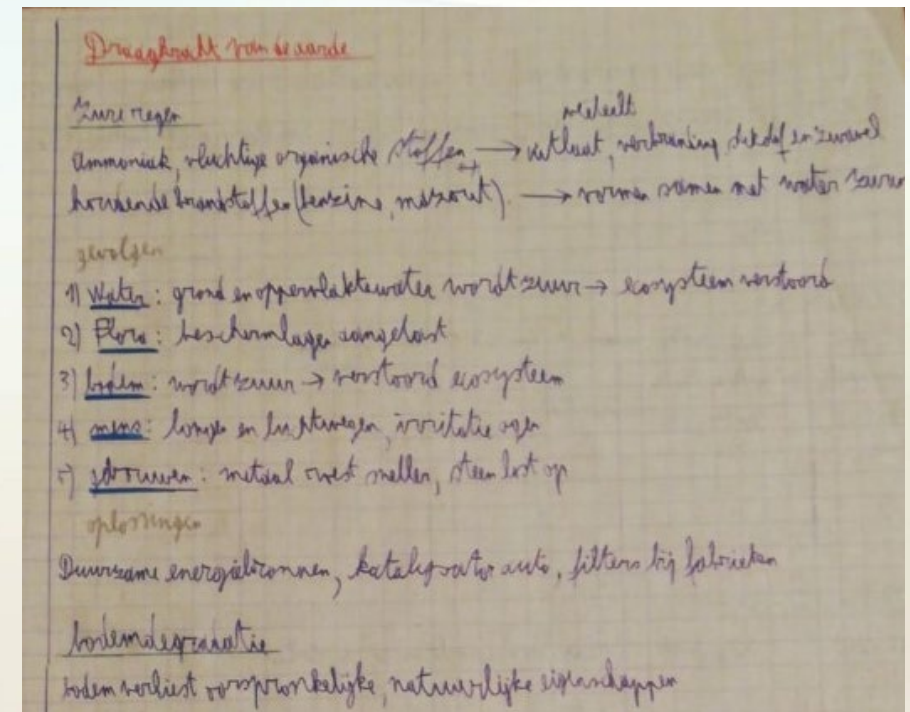 Draagkracht van de aarde
Zure regen
veeteelt
Ammoniak, vluchtige organische stoffen → uitlaat, verbranding stikstof en zwavel
houdende brandstoffen (benzine, mazout) → vormen samen met water zuur
gevolgen
1) Water: grond en oppervlaktewater wordt zuur → ecosysteem verstoord
2) Flora: beschermlagen aangetast
3) bodem: wordt zuur → verstoord ecosysteem
4) mens: longen en luchtwegen, irritatie ogen
5) gebouwen: metaal roest sneller, steen lost op
oplossingen
Duurzame energiebronnen, katalysator auto, filters bij fabrieken
bodemdegradatie
bodem verliest oorspronkelijke, natuurlijke eigenschappen